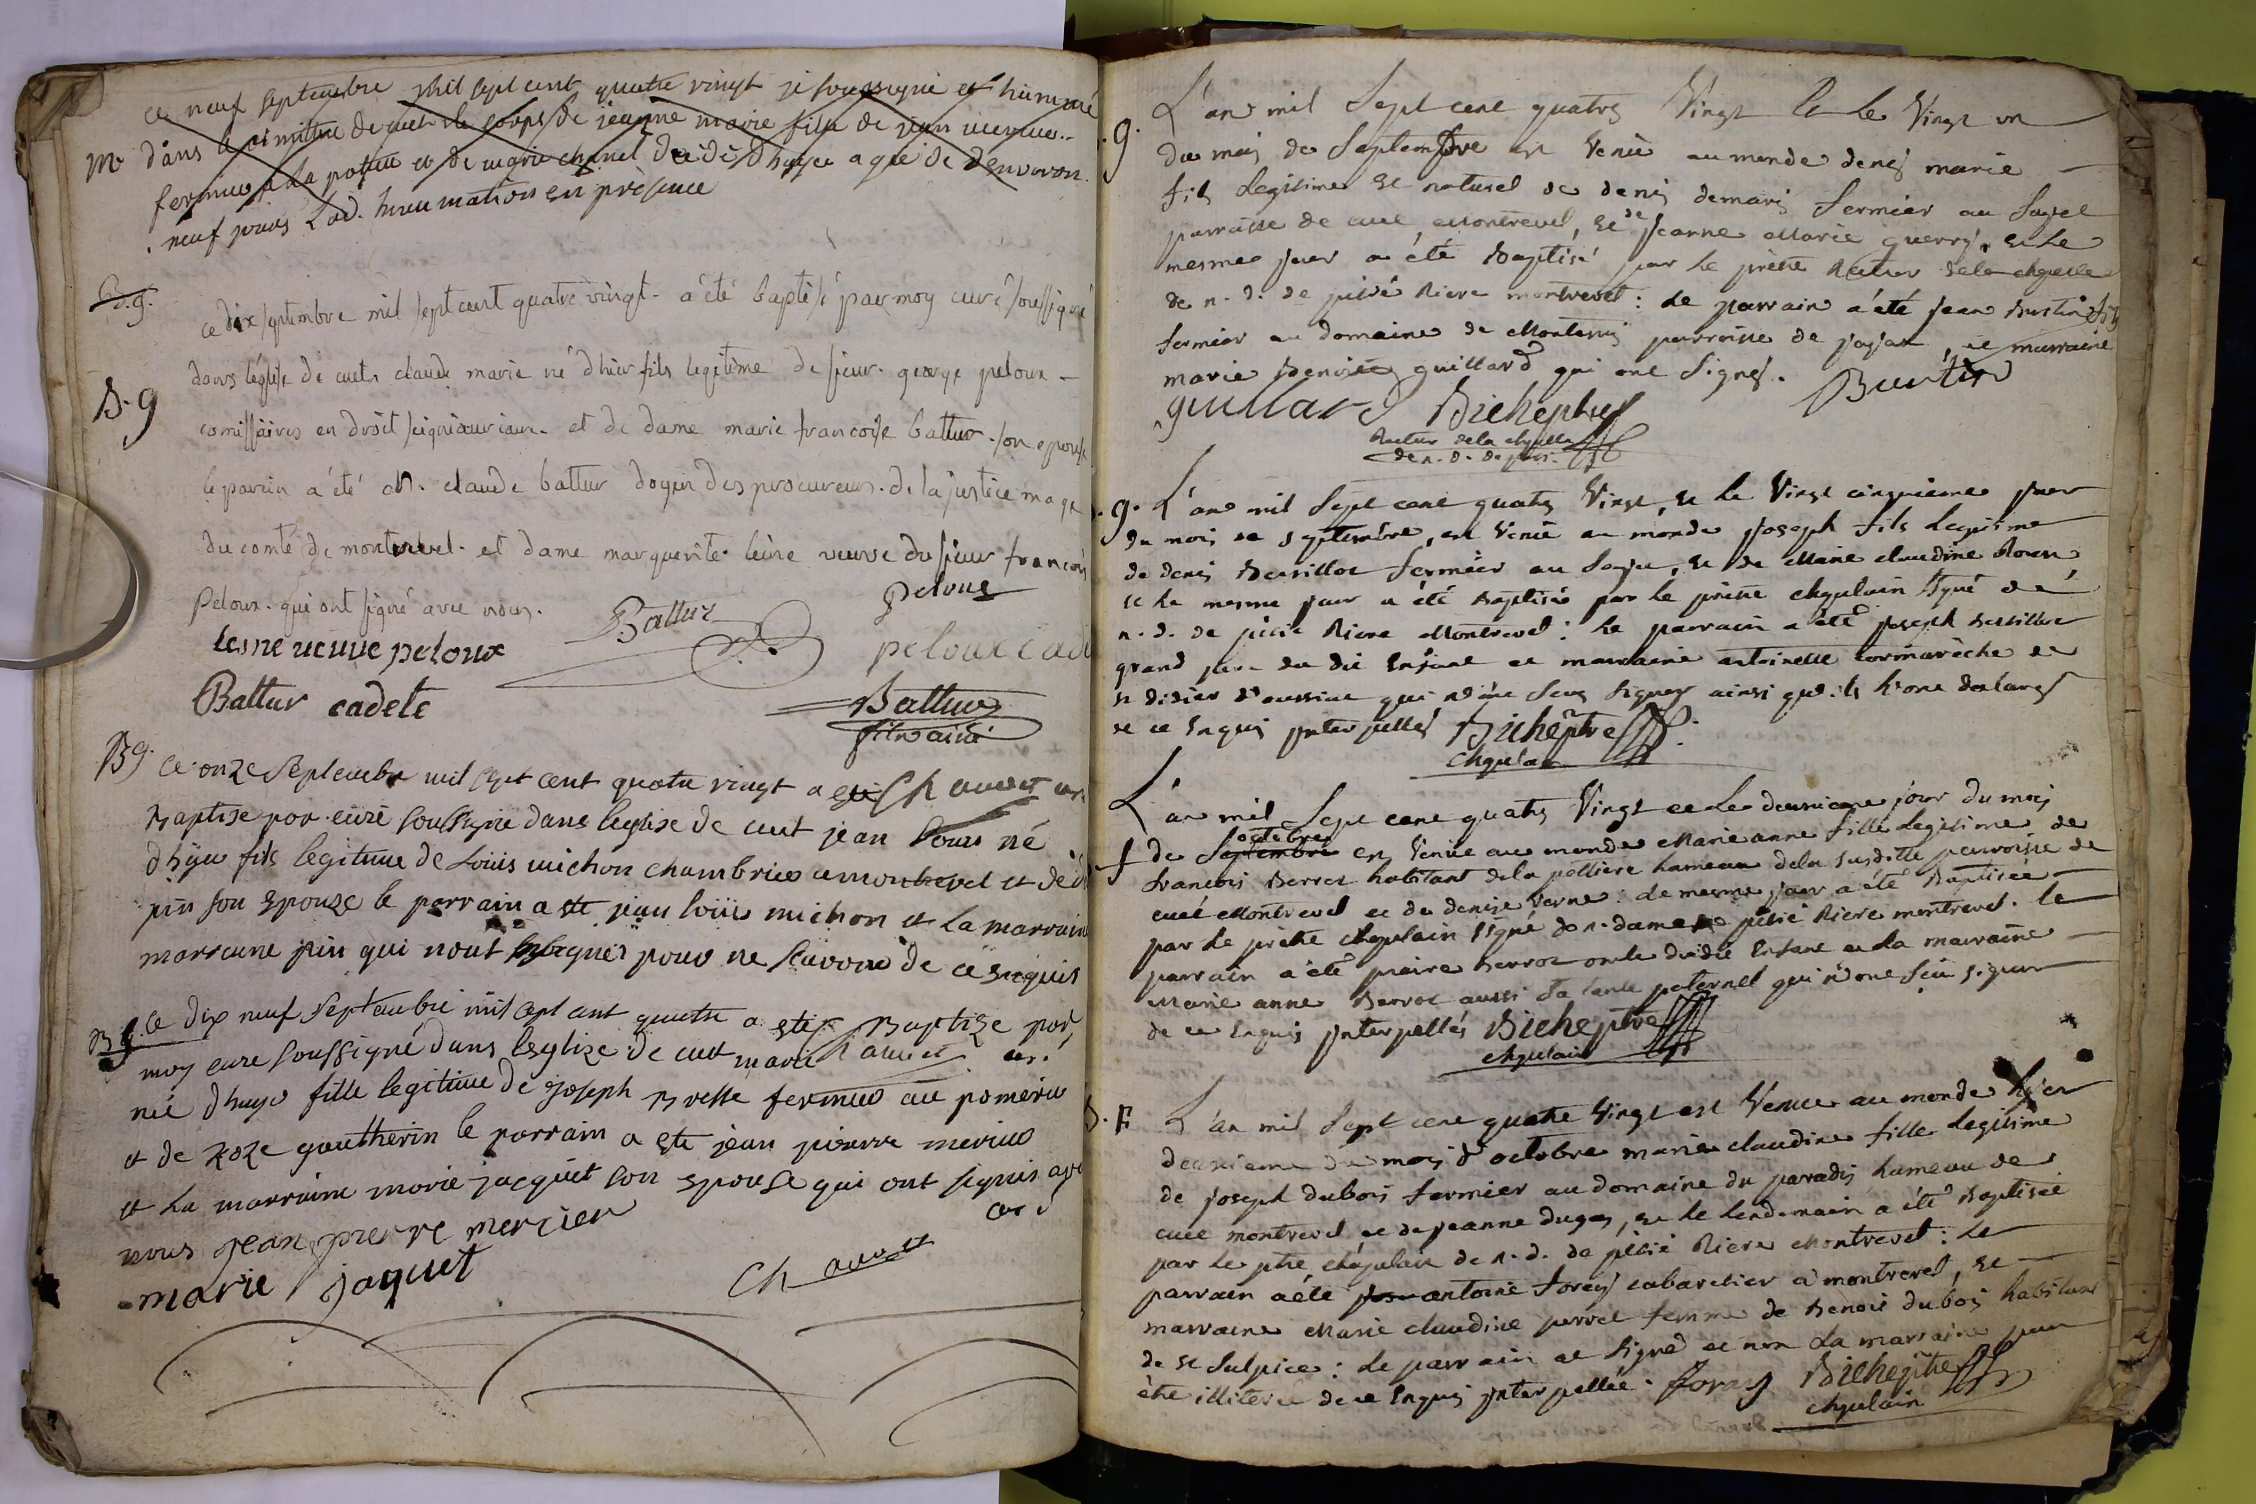 ce neuf septembre mil sept cent quatre vingt je soussigné et hinumé
Mr dans le cimittiere de cuet le corps de jeanne marie fille de jean
fermier a la potiere et de marie chanel decedé d'hyer agé de denviron
neuf jours Lad. hinumation en présence
B. g.
ce dix septembre mil sept cent quatre vingt a été baptisé par moy curé soussigné
dans l'églize de cuet claude marie né d'hier fils legitime de sieur george peloux
B. g
comissaires en droit seigneuriaux et de dame marie francoise battur son epouse
le parein a été Mr. claude battur doyen des procureurs de la justice mage
du comté de montrevel et dame marguerite leine veuve du sieur francois
peloux qui ont signé avec nous.
Battur
peloux
lesne veuve peloux
peloux cad
Battur cadete
Battur
fils ainé
B g. ce onze Septembre mil sept cent quatre vingt a été
Baptise par curé soussigné dans l'eglise de cuet jean louis né
d'hyer fils legitime de Louis michon chambrier a montrevel et de
pin son epouze le parrain a ete jean louis michon et la marraine
pin qui nont signer pour ne sçavoir de ce enquis
B g. ce dix neuf Septembre mil sept cent quatre a ete Baptize par
moy cure soussigné dans l'eglize de cuet marie
née d'huyer fille legitime de joseph Bresse fermier au pomerin
et de roze gautherin le parrain a ete jean pierre mercier
et la marraine marie jacquet son epouse qui ont signés avec
nous jean pierre mercier
marie jaquet
Chauvet curé
g. L'an mil Sept cent quatre Vingt et Le Vingt un
du mois de Septembre est Venü au monde denis marie
fils Legitime et naturel de denis demaris fermier au Sayet
parroisse de cuet, Montrevel, et de Jeanne Marie guerry, et le
mesme jour a été Baptisé par le prêtre Recteur de la chapelle
de n. d. de pitié Riere montrevel : Le parrain a été jean Burtin
fermier au domaine de Monternoz parroisse de jayat, et marraine
marie Denise guillard qui ont Signés.
Burtin
guillard Bicheptre
Recteur de la chapelle
de n. d. de pitié
g. L'an mil Sept cent quatre Vingt, et le Vingt cinquieme jour
du mois de septembre, est Venü au monde joseph fils Legitime
de denis Bevillot fermier au Sayet, et de Marie claudine Roux,
et le mesme jour a été Baptisé par le prêtre chapelain Signé de
n. d. de pitié Riere Montrevel : Le parrain a été joseph
grand pere du dit Enfant et marraine antoinette cormareche de
st didier d'oussiat qui n'ont Sceu Signer ainsi qu'ils l'ont declaré
de ce Enquis jnterpellés Bicheptre
chapelain
L'an mil Sept cent quatre Vingt et Le deuxieme jour du mois
de octobre est Venüe au monde Marie anne fille Legitime de
f
francois Berrot habitant de la pottiere hameau de la susditte parroisse de
cuet Montrevel et de denise Verne : Le mesme jour a été Baptisée
par Le prêtre chapelain Signé de n. dame de pitié Riere montrevel. Le
parrain a été Berrot oncle du dit Enfant et La marraine
Marie anne Berrot aussi Sa tante paternel qui n'ont Sçu Signer
de ce Enquis jnterpellés Bicheptre
chapelain
B. F. L'an mil Sept cent quatre Vingt est Venue au monde hier
deuxieme du mois d'octobre marie claudine fille Legitime
de joseph dubois fermier au domaine du paradis hameau de
cuet montrevel et de jeanne dugas, et le Lendemain a été Baptisée
par Le ptre chapelain de n. d. de pitié Riere Montrevel : Le
parrain a été antoine forey cabaretier a montrevel, et
marraine Marie claudine perret femme de Benoit dubois habitant
de st Sulpice : Le parrain a Signé et non La marraine pour
être illiterée de ce Enquis jnterpellée. forey Bicheptre
chapelain